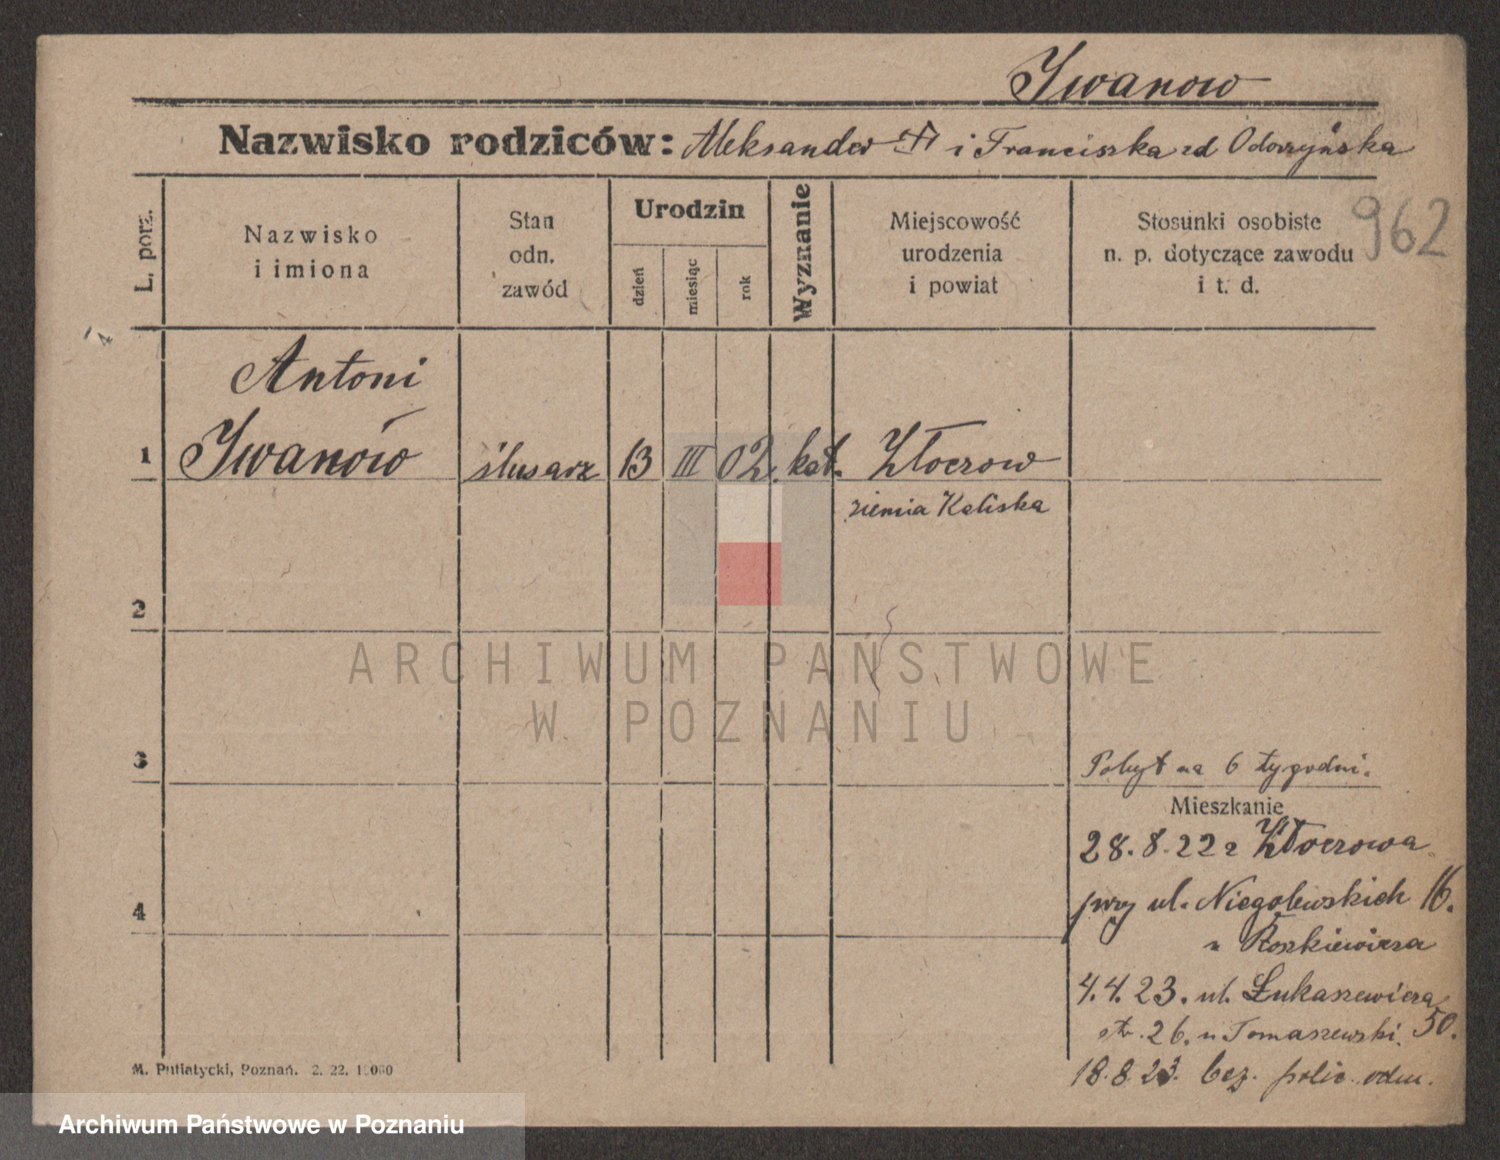 Iwanow
Nazwisko rodziców: Aleksander i Franciszka zd Odorzyńska
962
L. porz.
Nazwisko
i imiona
Stan
odn.
zawód
Urodzin
dzień
miesiąc
rok
Wyznanie
Miejscowość
urodzenia
i powiat
Stosunki osobiste
n. p. dotyczące zawodu
i t. d.
Antoni
1 Iwanów ślusarz 13 III 02. kat. Złoczow
ziemia Kaliska
2
3
Pobyt na 6 tygodni.
Mieszkanie
28.8.22 z Złoczowa
przy ul. Niegolewskich 16.
u Roszkiewicza
4
4.4.23. ul. Łukaszewicza 50.
str. 26. u Tomaszewski.
18.8.23. bez polic. odm.
M. Putiatycki, Poznań. 2. 22. 1.000
ARCHIWUM PAŃSTWOWE
W POZNANIU
Archiwum Państwowe w Poznaniu